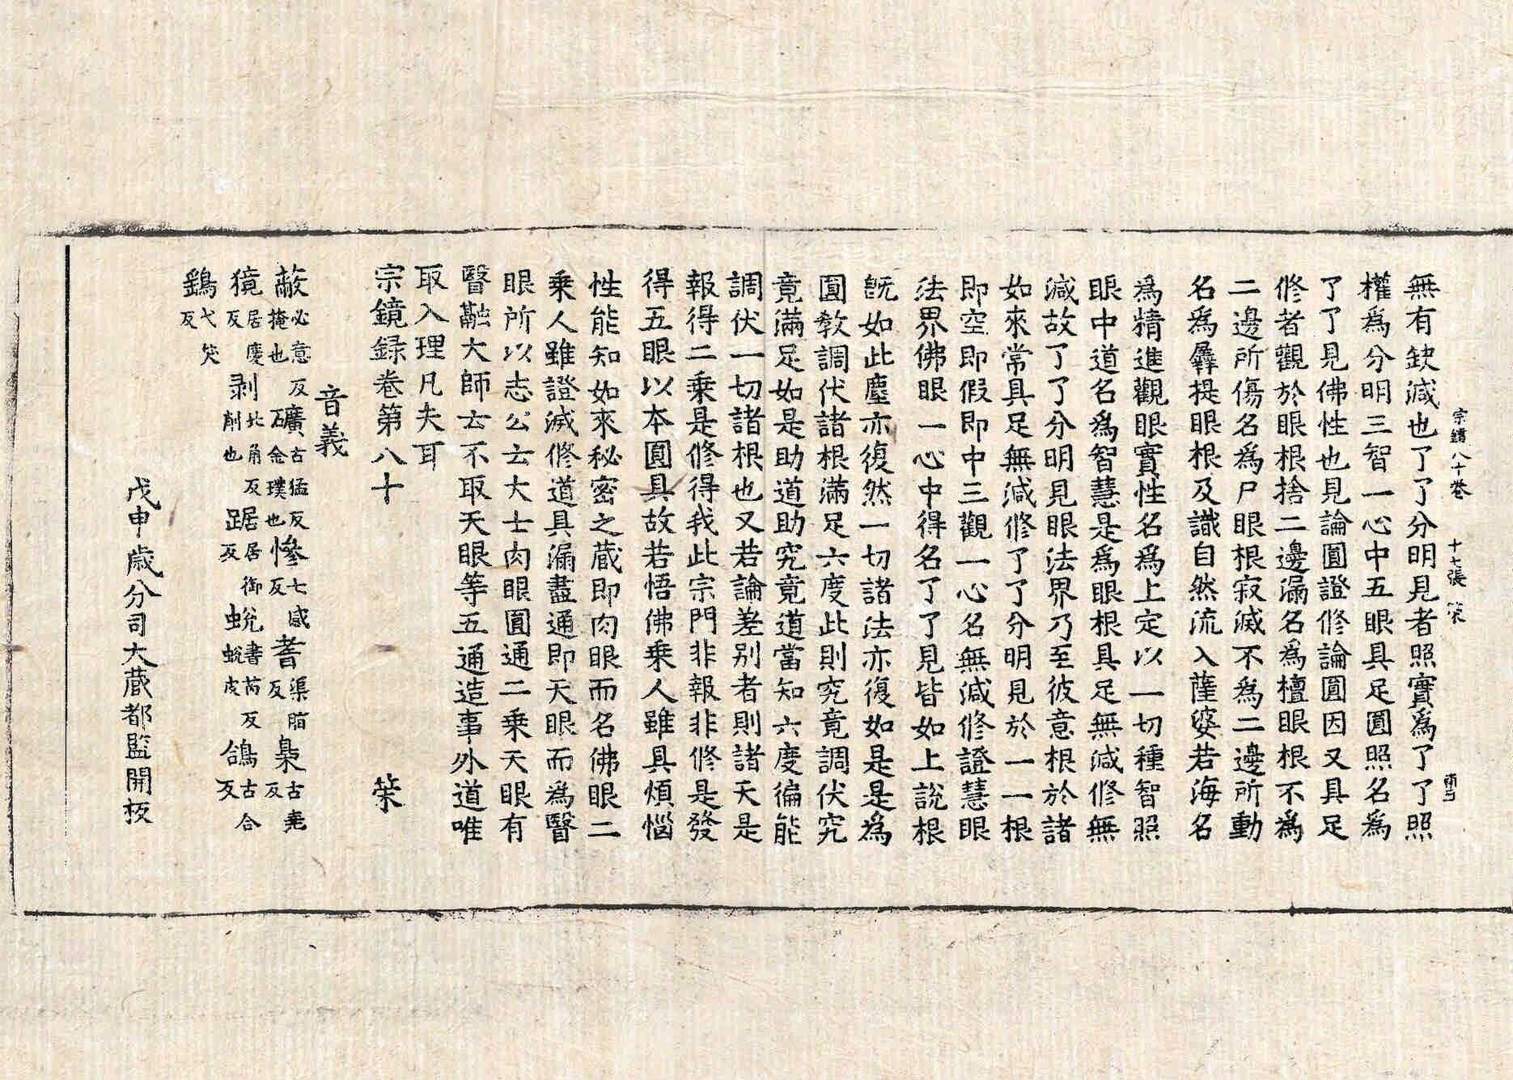 宗鏡八十卷 十七張 榮
無有欽減也了了分明見者照實爲了了照
權爲分明三智一心中五眼具足圓照名爲
了了見佛性也見論圓證修論圓因又具足
修者觀於眼根捨二邊漏名爲檀眼根不爲
二邊所傷名爲尸眼根寂滅不爲二邊所動
名爲羼提眼根及識自然流入薩婆若海名
爲精進觀眼實性名爲上定以一切種智照
眼中道名爲智慧是爲眼根具足無減修無
減故了了分明見眼法界乃至彼意根於諸
如來常具足無減修了了分明見於一一根
即空即假即中三觀一心名無減修證慧眼
法界佛眼一心中得名了了見皆如上說根
旣如此塵亦復然一切諸法亦復如是是爲
圓教調伏諸根滿足六度此則究竟調伏究
竟滿足如是助道助究竟道當知六度徧能
調伏一切諸根也又若論差別者則諸天是
報得二乘是修得我此宗門非報非修是發
得五眼以本圓具故若悟佛乘人雖具煩惱
性能知如來秘密之藏即肉眼而名佛眼二
乘人雖證滅修道具漏盡通即天眼而爲醫
眼所以志公云大士肉眼圓通二乘天眼有
醫融大師云不取天眼等五通造事外道唯
取入理凡夫耳
宗鏡錄卷第八十 榮
音義
蔽必意反掩也 礦古猛反石金璞也 慘七感反 耆渠脂反 梟古堯反
獍居慶反 剥北角反削也 踞居御反 蛻書芮反蛻皮 鴿古合反
鷂弋笑反
戊申歲分司大藏都監開板